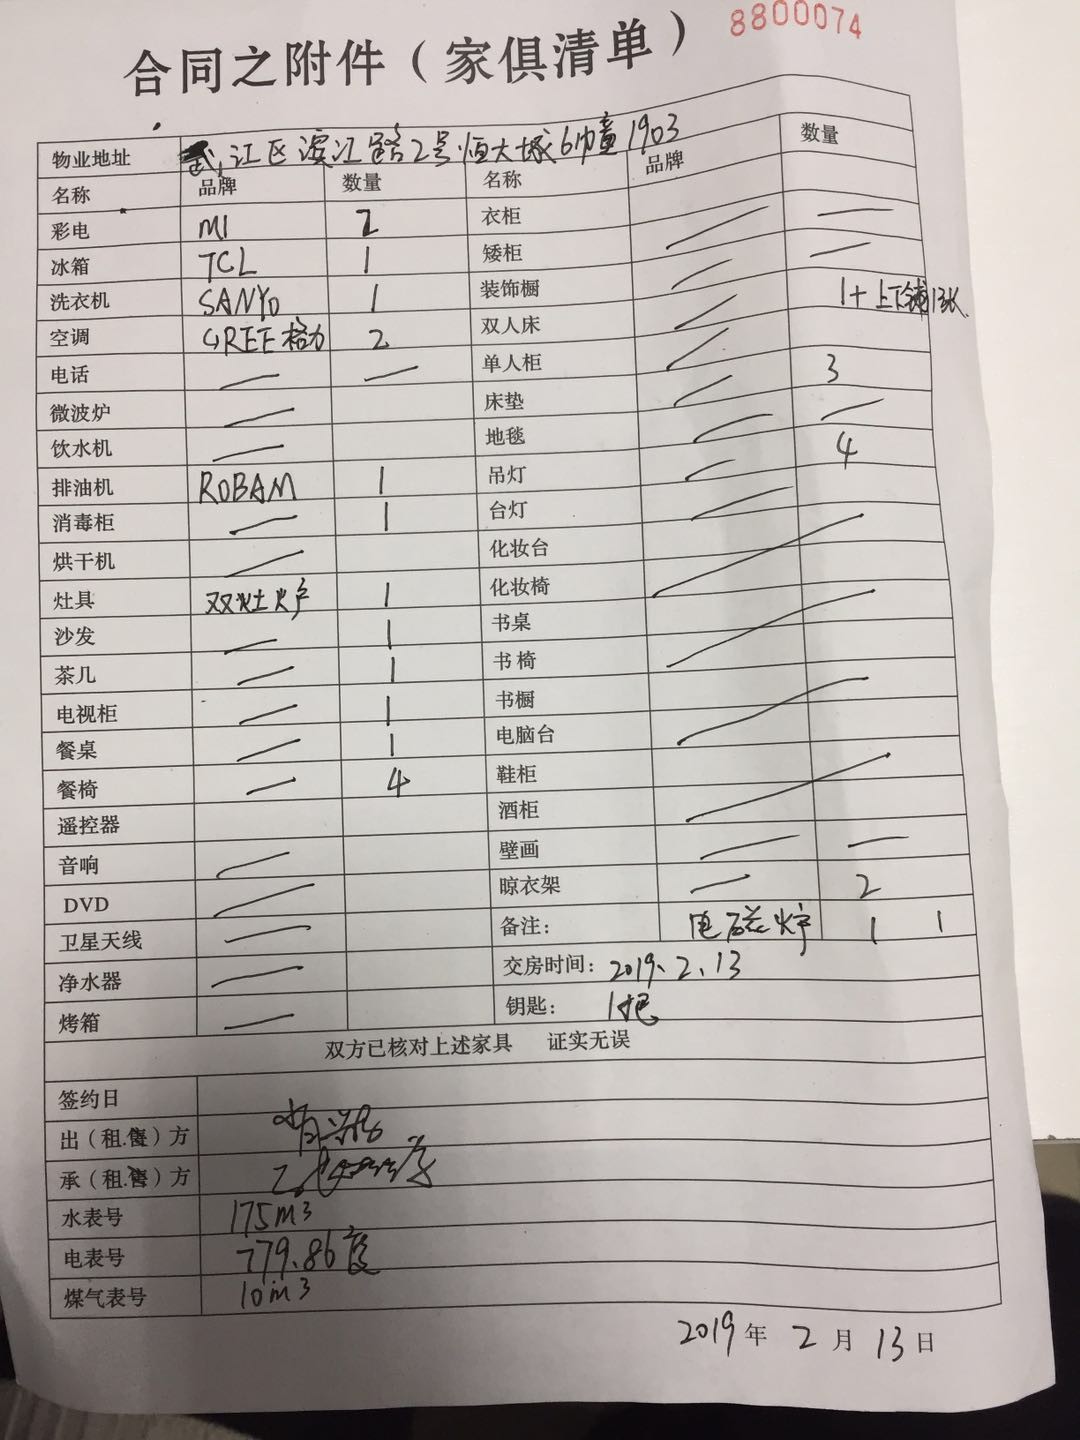 8800074
合同之附件（家俱清单）
物业地址 江区滨江路2号恒大城6幢1903 数量
名称 品牌 数量 名称 品牌
彩电 MI 2 衣柜
冰箱 TCL 1 矮柜
洗衣机 SANYO 1 装饰橱
空调 GREE格力 2 双人床 1+上下铺1张
电话 单人柜
微波炉 床垫 3
饮水机 地毯
排油机 ROBAM 1 吊灯 4
消毒柜 1 台灯
烘干机 化妆台
灶具 双灶炉 1 化妆椅
沙发 1 书桌
茶几 1 书椅
电视柜 1 书橱
餐桌 1 电脑台
餐椅 4 鞋柜
遥控器 酒柜
音响 壁画
DVD 晾衣架 2
卫星天线 备注： 电磁炉 1 1
净水器 交房时间：2019.2.13
烤箱 钥匙： 1把
双方已核对上述家具 证实无误
签约日
出（租.售）方
承（租.售）方
水表号 175m3
电表号 779.86度
煤气表号 10m3
2019年2月13日